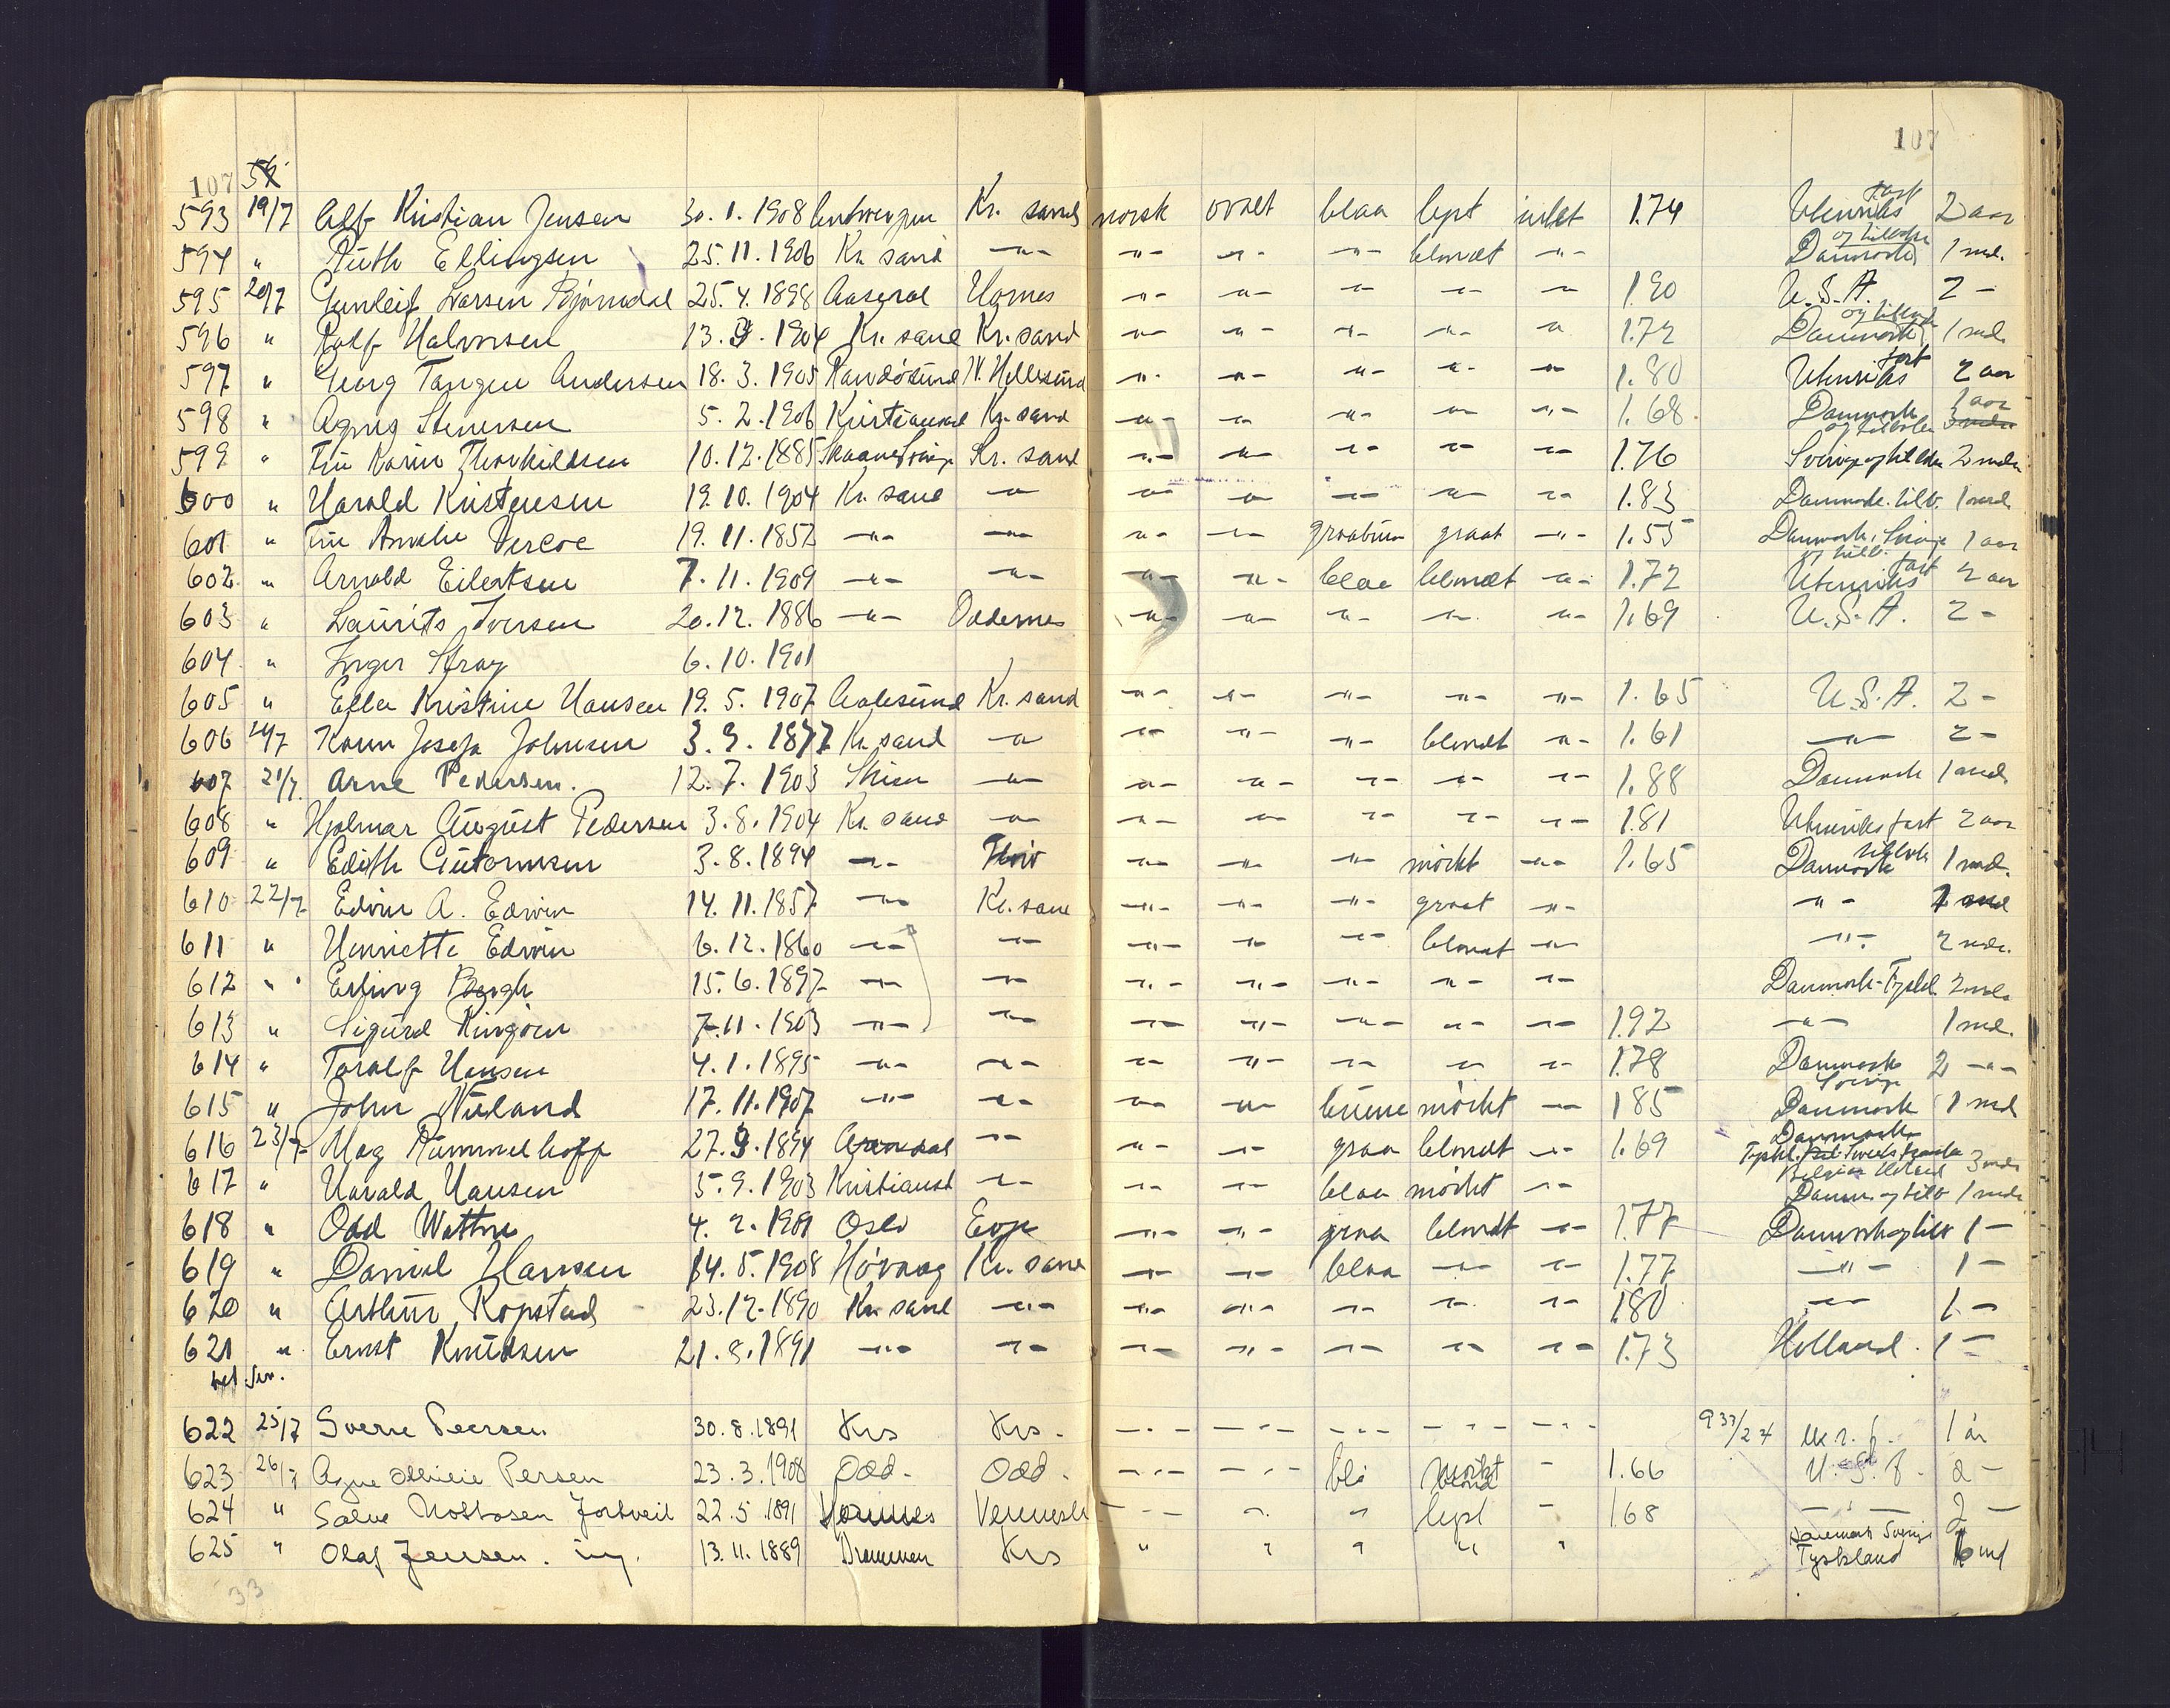 107 107
593 19/7 Alf Kristian Jensen 30.1.1908 Antwerpen Kr. sand norsk ovalt blaa lyst intet 1.74 Utenriks fart 2 aar
594 " Ruth Ellingsen 25.11.1906 Kr. sand -"- -"- -"- -"- blondt -"- Danmark 1 md.
595 20/7 Gunleif Larsen Bjørndal 25.4.1898 Aaseral Hornes -"- -"- -"- -"- -"- 1.90 U.S.A. 2 -
596 " Rolf Halvorsen 13.9.1904 Kr. sand Kr. sand -"- -"- -"- -"- -"- 1.72 Danmark 1 md.
597 " Georg Tangen Andersen 18.3.1905 Randøsund N. Hellesund -"- -"- -"- -"- -"- 1.80 Utenriks fart 2 aar
598 " Agnes Stenersen 5.2.1906 Kristiansund Kr. sand -"- -"- -"- -"- -"- 1.68 Danmark 1 aar
599 " Fru Karin Thorkildsen 10.12.1885 Kr. sand -"- -"- -"- -"- -"- 1.76 Sverige og 2 mdr
600 " Harald Kristensen 19.10.1904 Kr. sand -"- -"- -"- -"- -"- -"- 1.83 Danmark. 1 md
601 " Fru Amalie Vercoe 19.11.1852 -"- -"- -"- -"- graabrun graat -"- 1.55 Danmark, Sverige 1 aar
602 " Arnold Eilertsen 7.11.1909 -"- -"- -"- -"- blaa blondt -"- 1.72 Utenriks fart 2 aar
603 " Laurits Iversen 20.12.1886 -"- Oddernes -"- -"- -"- -"- -"- 1.69 U.S.A. 2 -
604 " Inger Stray 6.10.1901
605 " Ella Kristine Hansen 19.5.1907 Aalesund Kr. sand -"- -"- -"- -"- -"- 1.65 U.S.A. 2 -
606 Karen Josefa Johnsen 3.9.1877 Kr. sand -"- -"- -"- -"- blondt -"- 1.61 -"- 2 -
607 21/7 Arne Pedersen. 12.7.1903 Skien -"- -"- -"- -"- -"- -"- 1.88 Danmark 1 md
608 " Hjalmar August Pedersen 3.8.1904 Kr. sand -"- -"- -"- -"- -"- -"- 1.81 Utenriks fart 2 aar
609 " Edith Gutormsen 3.8.1894 -"- -"- -"- -"- mørkt -"- 1.65 Danmark 1 md.
610 22/7 Edvin A. Edwin 14.11.1857 -"- Kr. sand -"- -"- -"- graat -"- -"- 1 md
611 " Henriette Edwin 6.12.1860 -"- -"- -"- -"- -"- blondt -"- -"- 2 mdr.
612 " Erling Bergh 15.6.1897 -"- -"- -"- -"- -"- -"- -"- Danmark-Tyskl. 2 mdr
613 " Sigurd Ringøen 7.11.1903 -"- -"- -"- -"- -"- -"- -"- 1.92 -"- 1 md.
614 " Toralf Hansen 4.1.1895 -"- -"- -"- -"- -"- -"- -"- 1.78 Danmark Sverige 2 -"-
615 " John Nuland 17.11.1907 -"- -"- -"- -"- brune mørkt -"- 1.85 Danmark 1 md
616 23/7 Mag Rummelhoff 27.9.1894 Arendal -"- -"- -"- graa blondt -"- 1.69 Danmark Tyskl. Belgien Holland 3 mdr
617 " Harald Hansen 5.9.1903 Kristiansd -"- -"- -"- blaa mørkt -"- Danm. og 1 md
618 " Odd Wattne 4.2.1901 Oslo Evje -"- -"- graa blondt -"- 1.77 Danmark og 1 -
619 " Daniel Hansen 14.5.1908 Høvaag Kr. sand -"- -"- blaa -"- -"- 1.77 -"- 1 -
620 " Arthur Ropstad 23.12.1890 Kr. sand -"- -"- -"- -"- -"- -"- 1.80 -"- 1 -
621 " Ernst Knudsen 21.8.1891 -"- -"- -"- -"- -"- -"- -"- 1.73 Holland. 1 -
622 25/7 Sverre Peersen 30.8.1891 Krs Krs. -"- -"- -"- -"- -"- 933/27 1 år
623 26/7 Persen 23.3.1908 Odd. Odd. -"- -"- blå blond - 1.66 U.S.A. 2 -
624 " Salve 22.5.1891 Vennesla -"- " " lyst - 1.68 -"- 2 -
625 " Olaf Jensen. ing. 13.11.1889 Drammen Krs " " " " " Danmark Sverige Tyskland 6 md
33